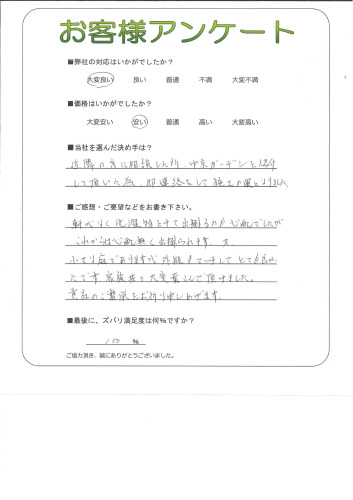 お客様アンケート
■弊社の対応はいかがでしたか？
大変良い 良い 普通 不満 大変不満
■価格はいかがでしたか？
大変安い 安い 普通 高い 大変高い
■当社を選んだ決め手は？
近隣の方に相談した所、中京ガーデンを紹介
して頂いた為、即連絡をして施工の運びとなりました。
■ご感想・ご要望などをお書き下さい。
洗濯物 出掛るのが心配でしたが
これからは心配無く出掛けられます。又、
小さな庭でありますが 外観もマッチして とても良かっ
たです 家族共々大変喜んで頂けました。
貴社のご繁栄をお祈り申しあげます。
■最後に、ズバリ満足度は何%ですか？
100 %
ご協力頂き、誠にありがとうございました。